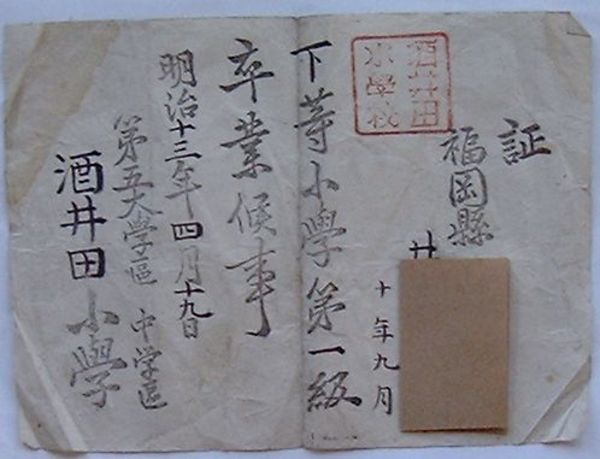 証
福岡縣
井
十年九月
酒井田
小學校
下等小學第一級
卒業候事
明治十三年四月十九日
第五大学區 中学區
酒井田小學